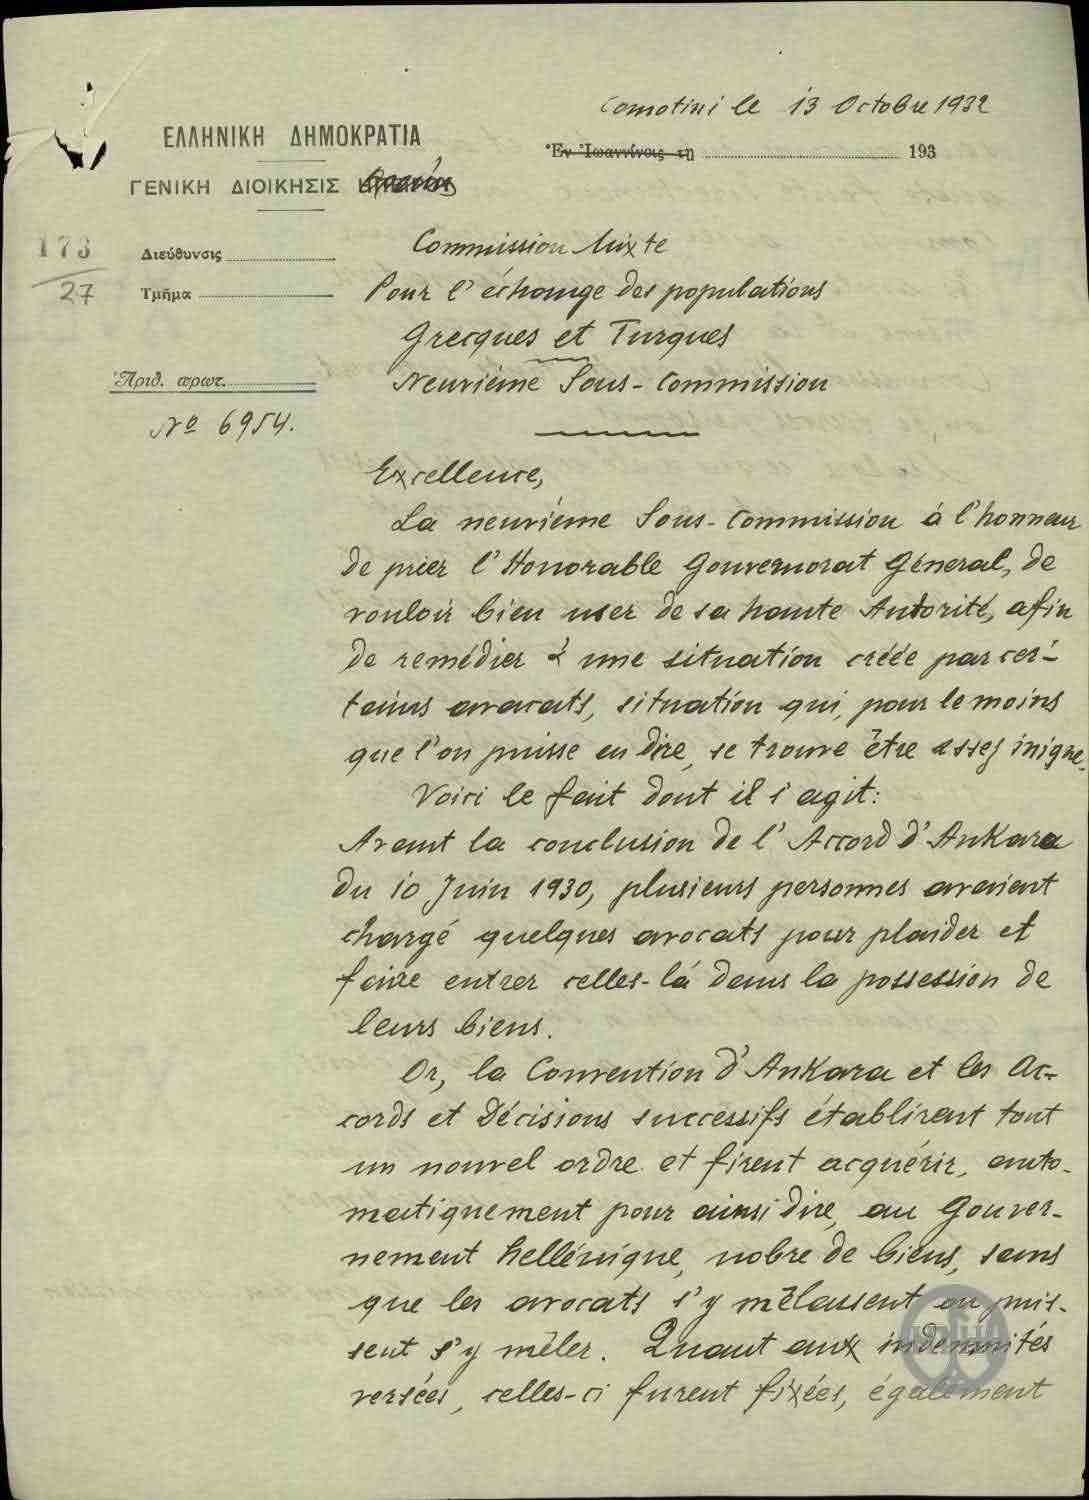 Comotini le 13 Octobre 1932
ΕΛΛΗΝΙΚΗ ΔΗΜΟΚΡΑΤΙΑ
Ἐν Ἰωαννίνοις τῃ 193
ΓΕΝΙΚΗ ΔΙΟΙΚΗΣΙΣ
173
27
Διεύθυνσις
Τμῆμα
Ἀριθ. πρωτ.
Nº 6954.
Commission Mixte
Pour l'échange des populations
Grecques et Turques
Neuvième Sous-Commission
Excellence,
La neuvième Sous-Commission à l'honneur
de prier l'Honorable Gouvernorat Géneral, de
vouloir bien user de sa haute Autorité, afin
de remédier à une situation créée par cer-
tains avocats, situation qui, pour le moins
que l'on puisse en dire, se trouve être assez inique.
Voici le fait dont il s'agit:
Avant la conclusion de l'Accord d'Ankara
du 10 Juin 1930, plusieurs personnes avaient
chargé quelques avocats pour plaider et
faire entrer celles-là dans la possession de
leurs biens.
Or, la Convention d'Ankara et les Ac-
cords et Décisions successifs établirent tout
un nouvel ordre et firent acquérir, auto-
matiquement pour ainsi dire, au Gouver-
nement hellénique, nobre de biens, sans
que les avocats s'y mêlassent ou puis-
sent s'y mêler. Quant aux indemnités
versées, celles-ci furent fixées, également